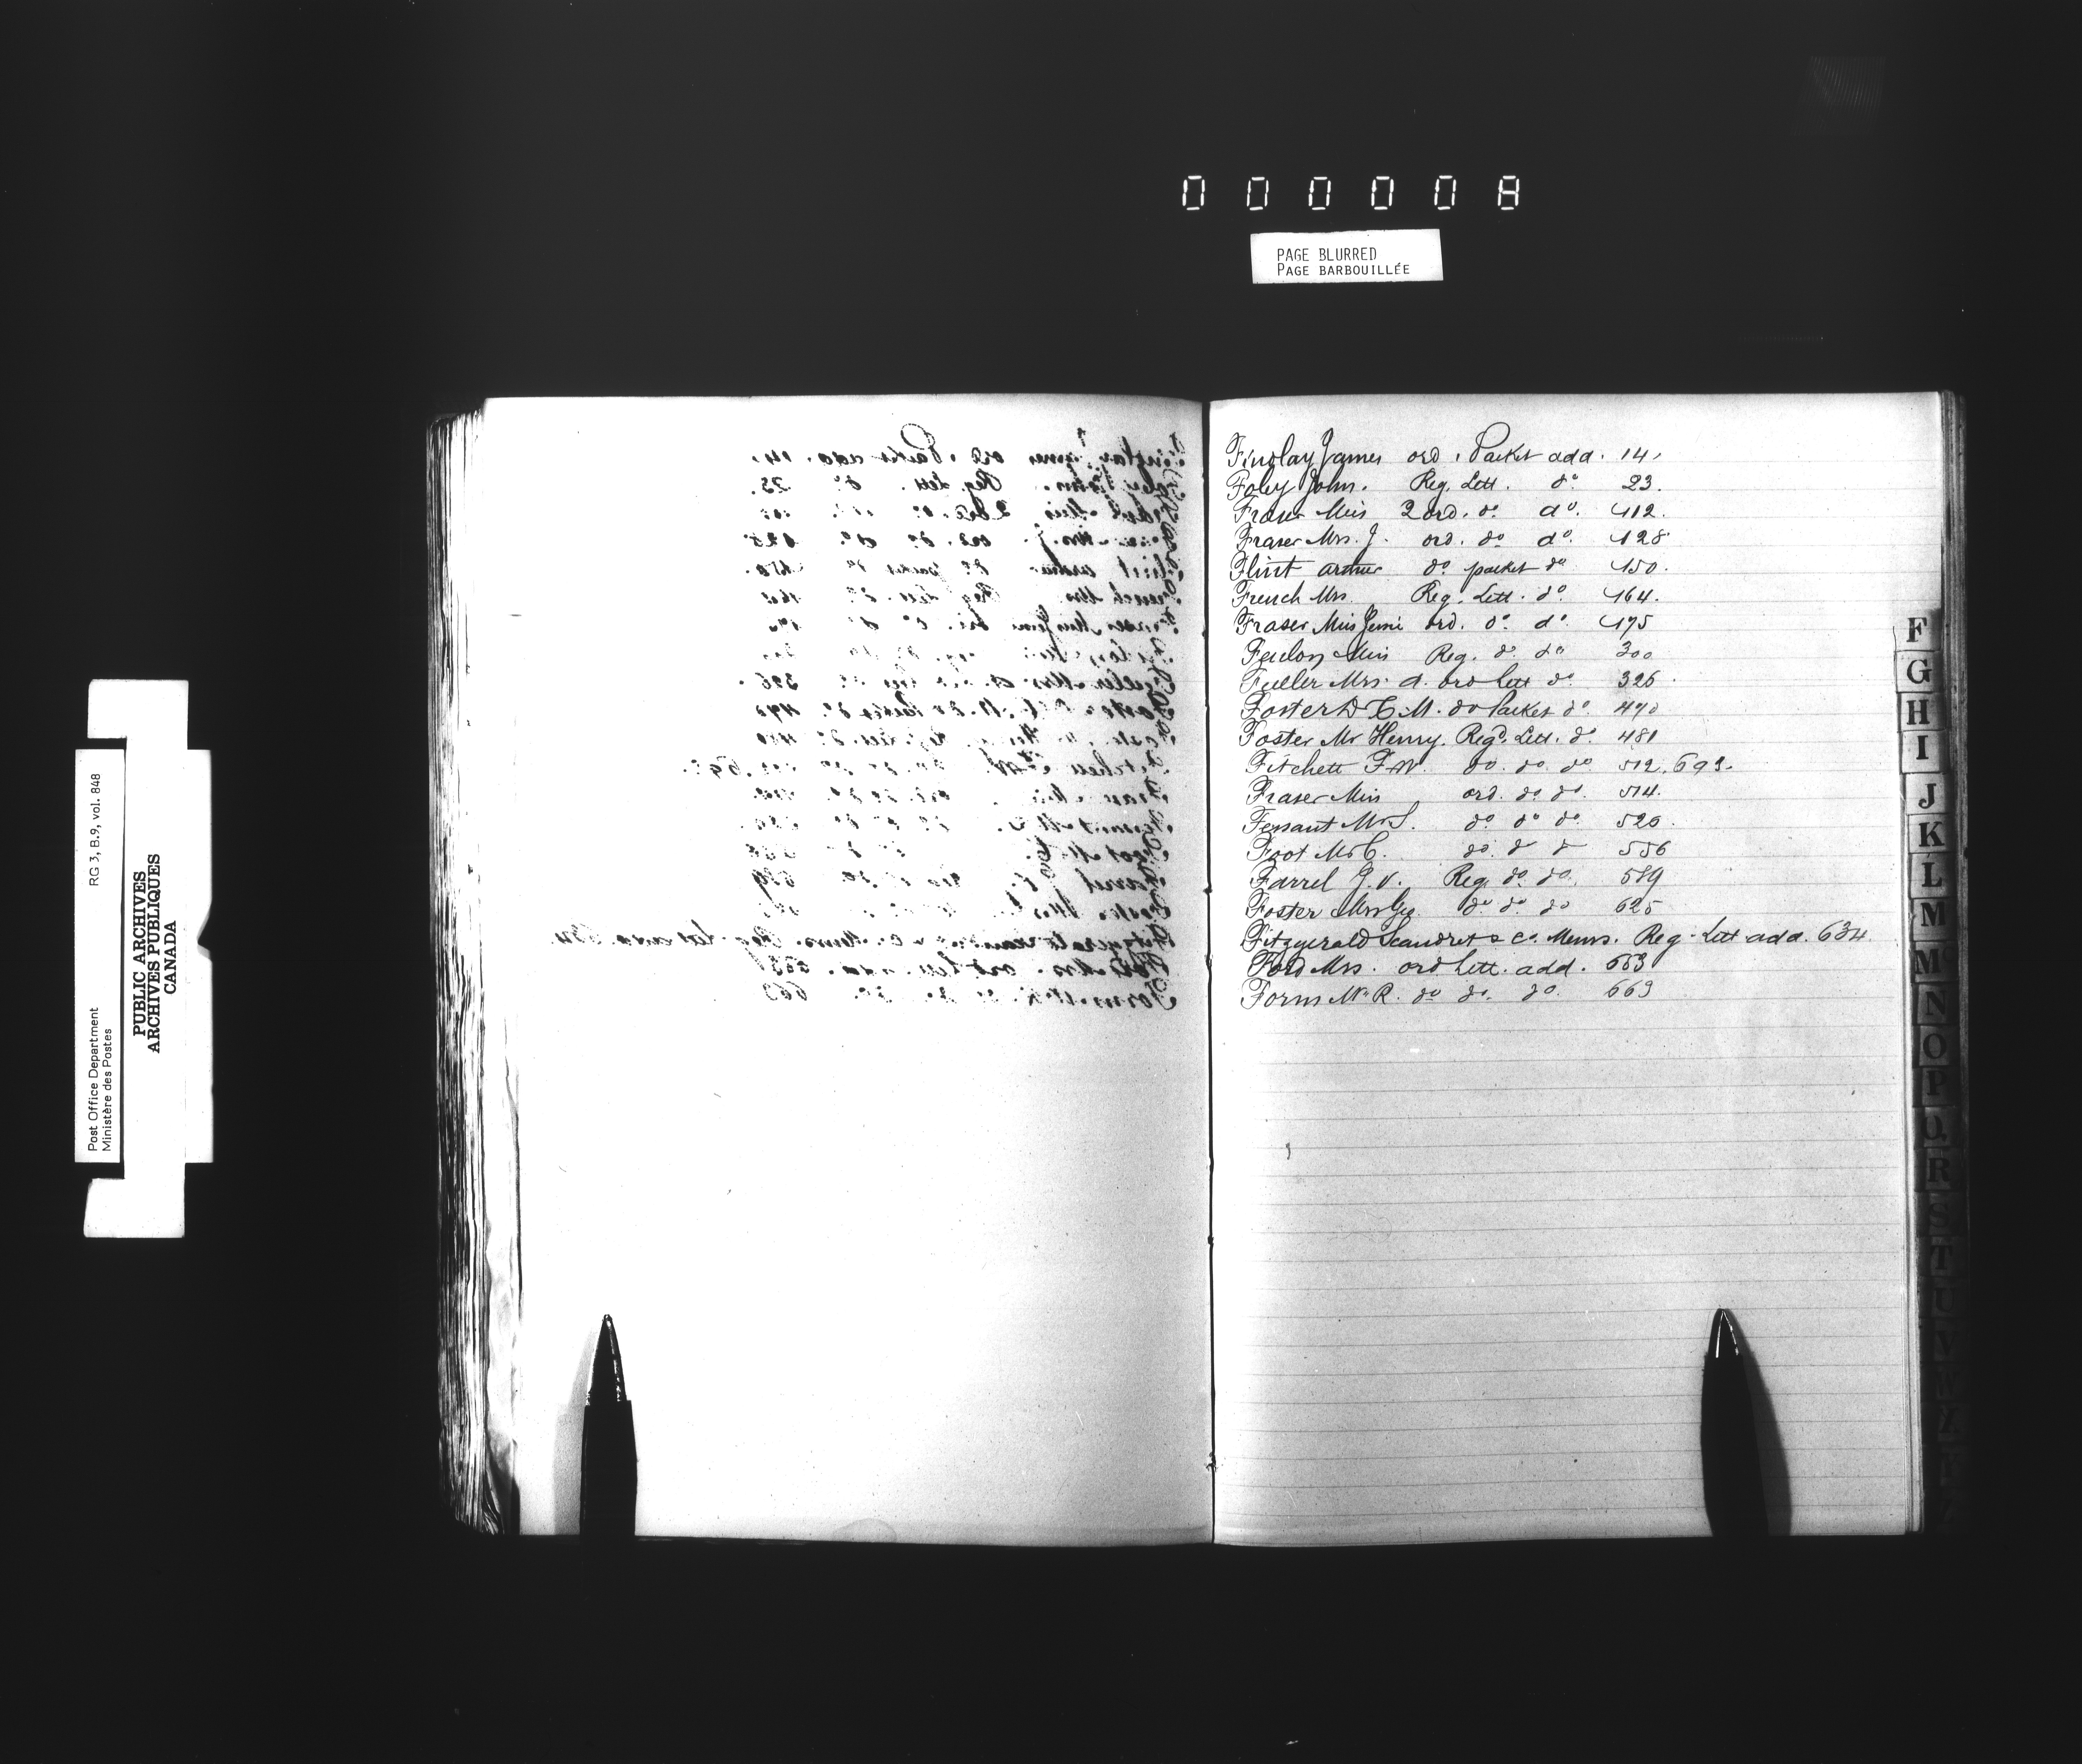 000008
PAGE BLURRED
PAGE BARBOUILLÉE
Post Office Department
Ministère des Postes
RG 3, B.9, vol. 848
PUBLIC ARCHIVES
ARCHIVES PUBLIQUES
CANADA
Findlay James ord. Packet add. 14.
Foley John. Reg. Lett. do 23.
Fraser Miss 2 ord. do do. 112.
Fraser Mrs. J. ord. do do. 128
Flint do packet do 150.
French Mrs. Reg. Lett. do. 164.
Fraser Miss Jessie ord. do do. 175
Miss Reg. do. do 300
Fuller Mrs. A. ord Lett do. 326.
Foster D C. M. do Packet do. 470
Foster Mr Henry. Regd. Lett. do. 481
Fitchett F W. do. do. do 512, 693.
Fraser Miss ord. do do. 514.
Mr S. do. do do. 520.
Foot Mr C. do. do do 556
Farrel J. V. Reg do. do. 589
Foster Mrs Geo do do. do 625
Fitzgerald Scandret & Co. Messrs. Reg. Lett add. 634
Ford Mrs. ord Lett. add. 653
Form Mr R. do do. do. 663
F
G
H
I
J
K
L
M
Mc
N
O
P
Q
R
S
T